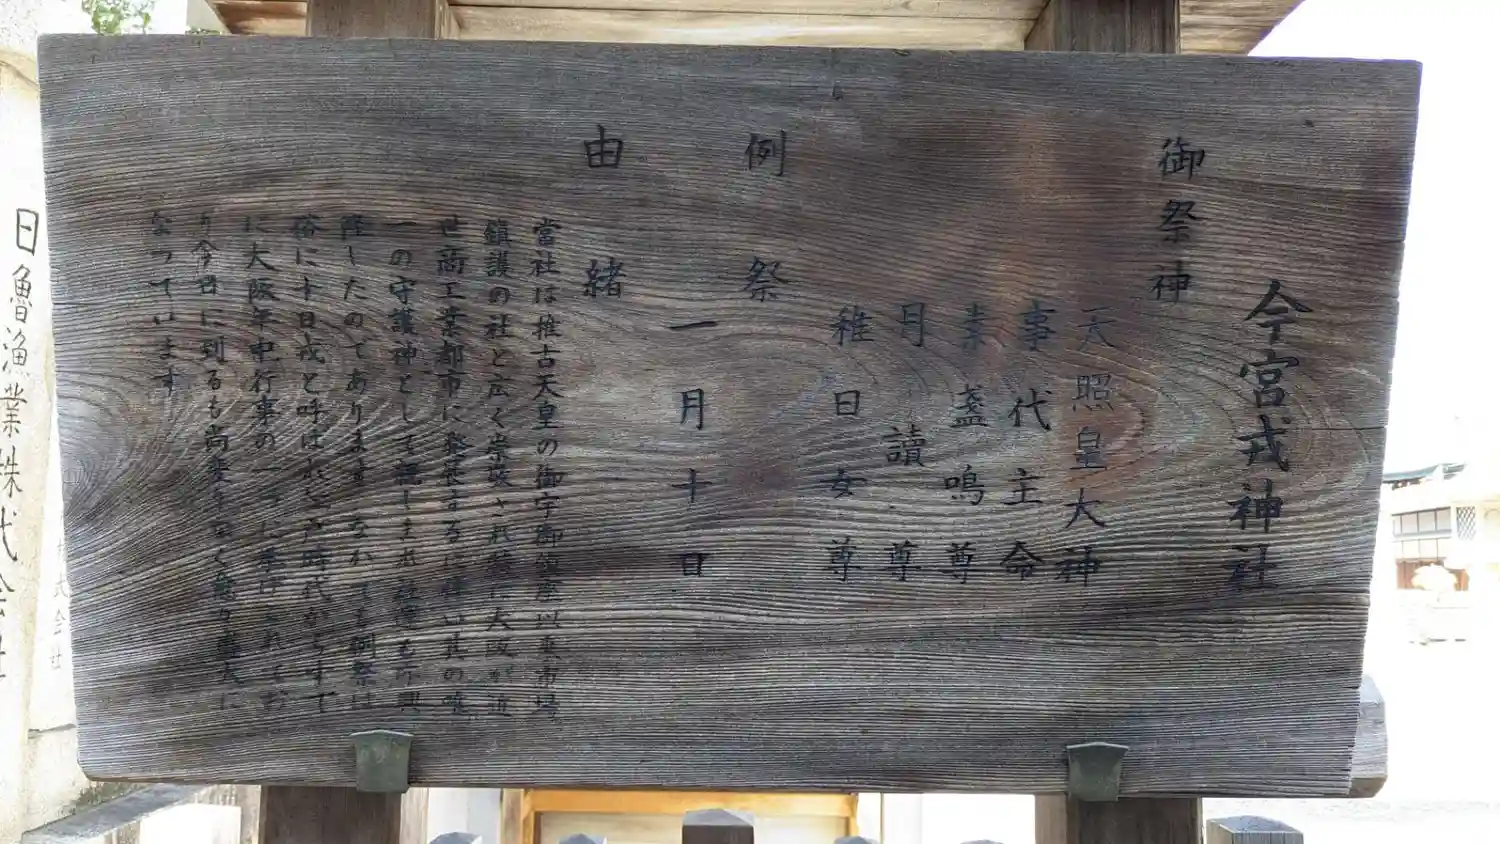 今宮戎神社
御祭神
天照皇大神
事代主命
素盞鳴尊
月讀尊
稚日女尊
例祭
一月十日
由緒
當社は推古天皇の御宇御鎮座以来市場
鎮護の社と広く崇敬され殊に大阪が近
世商工業都市に発展するに伴い其の唯
一の守護神として親しまれ
隆したのであります なかでも例祭は
俗に十日戎と呼ばれ 時代からすで
に大阪年中行事の一に されてお
り今日に到るも尚変りなく 大に
なっています
日魯漁業株式会社
式会社